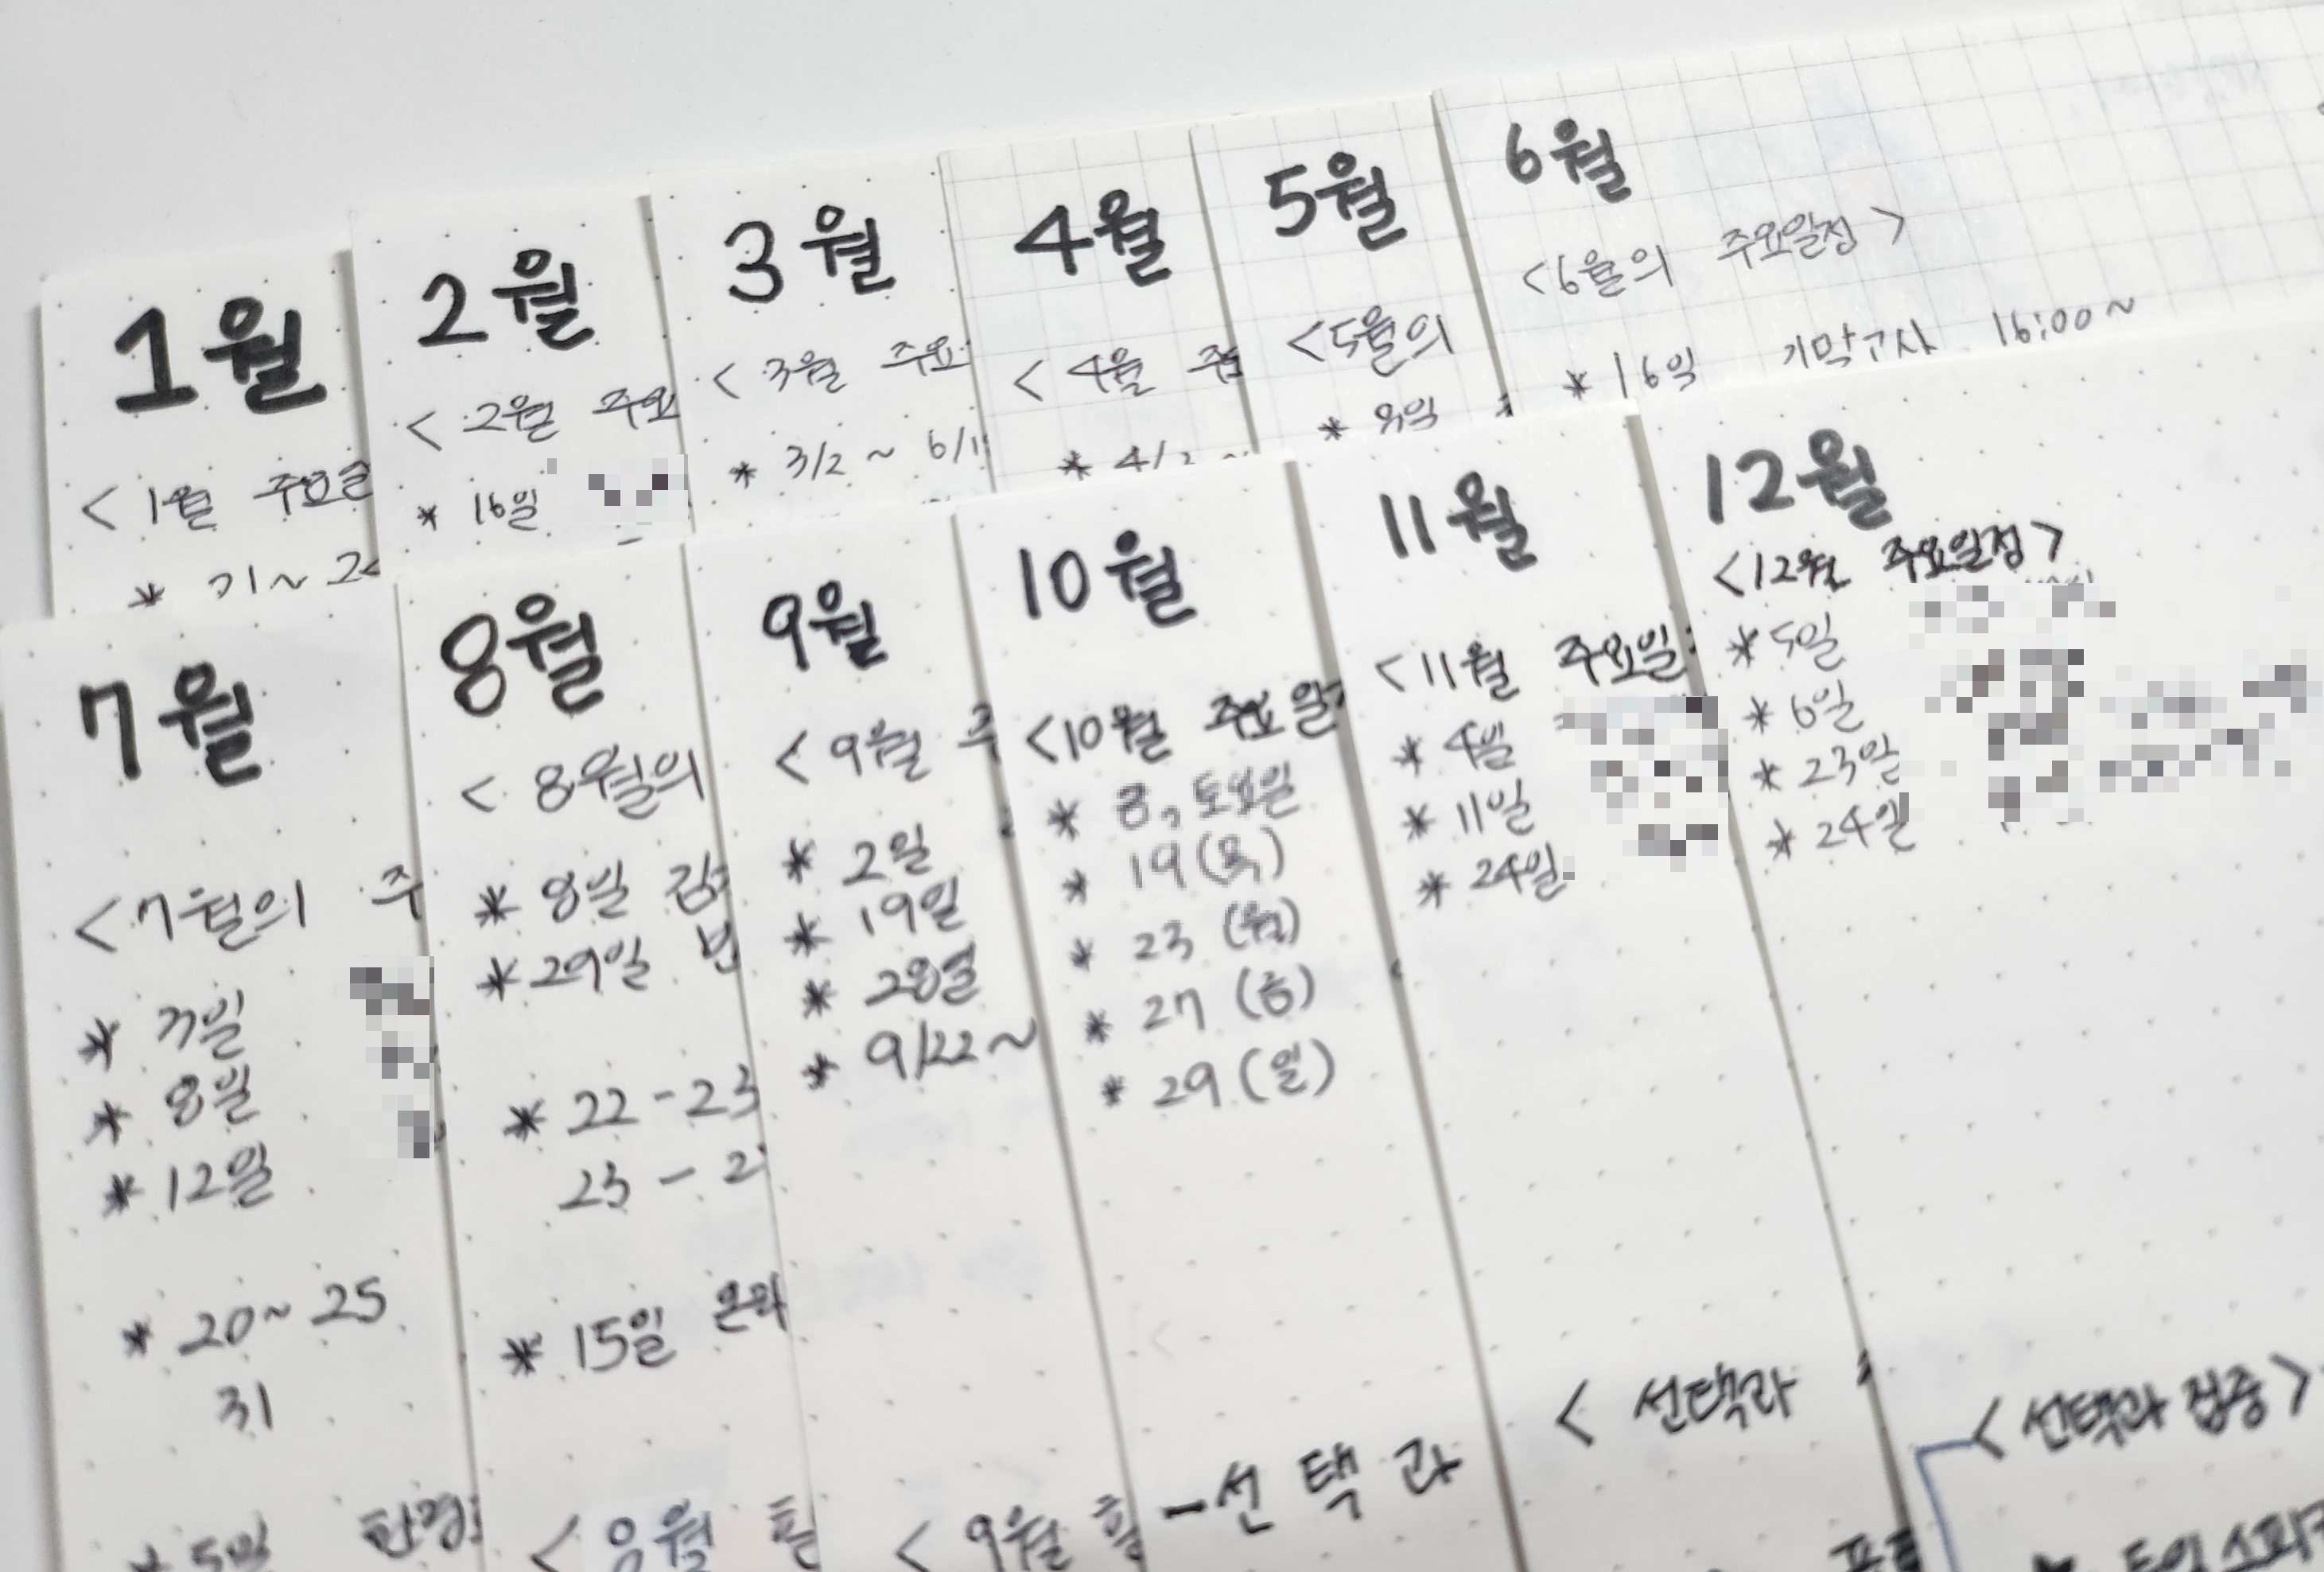 1월
< 1월 주요일
2월
< 2월 주요
* 16일
3월
< 3월 주요
* 3/2 ~ 6/1
4월
< 4월 주
* 4/2 ~
5월
<5월의
* 8일
6월
<6월의 주요일정>
* 16일 기말고사 16:00~
7월
<7월의 주
* 7일
* 8일
* 12일
* 20~25
31
* 5일
8월
< 8월의
* 8일
* 29일
* 22-23
23 - 2
* 15일 온라
< 8월
9월
< 9월 주
* 2일
* 19일
* 28일
* 9/22~
< 9월
10월
<10월 주요일
* 8, 토요일
* 19(목)
* 23 (월)
* 27 (금)
* 29 (일)
-선택과
11월
<11월 주요일
* 4일
* 11일
* 24일
< 선택과
12월
<12월 주요일정>
* 5일
* 6일
* 23일
* 24일
< 선택과 집중 >